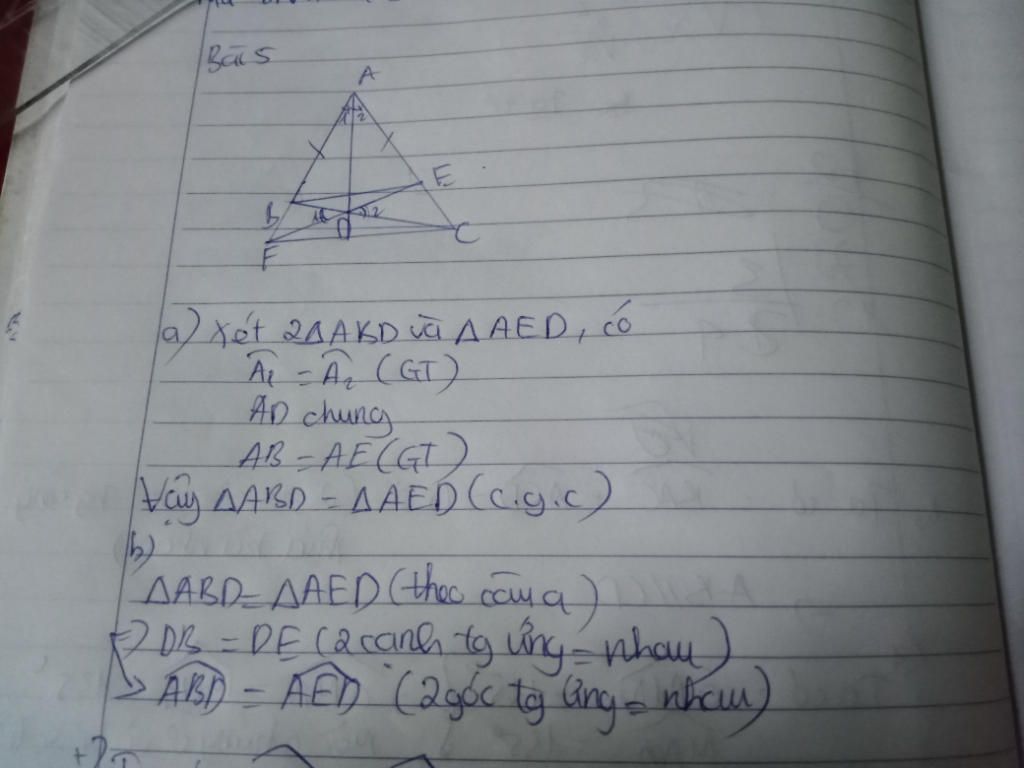 Bài 5
A
1 2
E
B
D
C
F
a) Xét 2ΔABD và ΔAED, có
Â₁ = Â₂ (GT)
AD chung
AB = AE (GT)
Vậy ΔABD = ΔAED (c.g.c)
b)
ΔABD = ΔAED (theo câu a)
=> DB = DE (2 cạnh tg ứng = nhau)
-> ABD = AED (2 góc tg ứng = nhau)